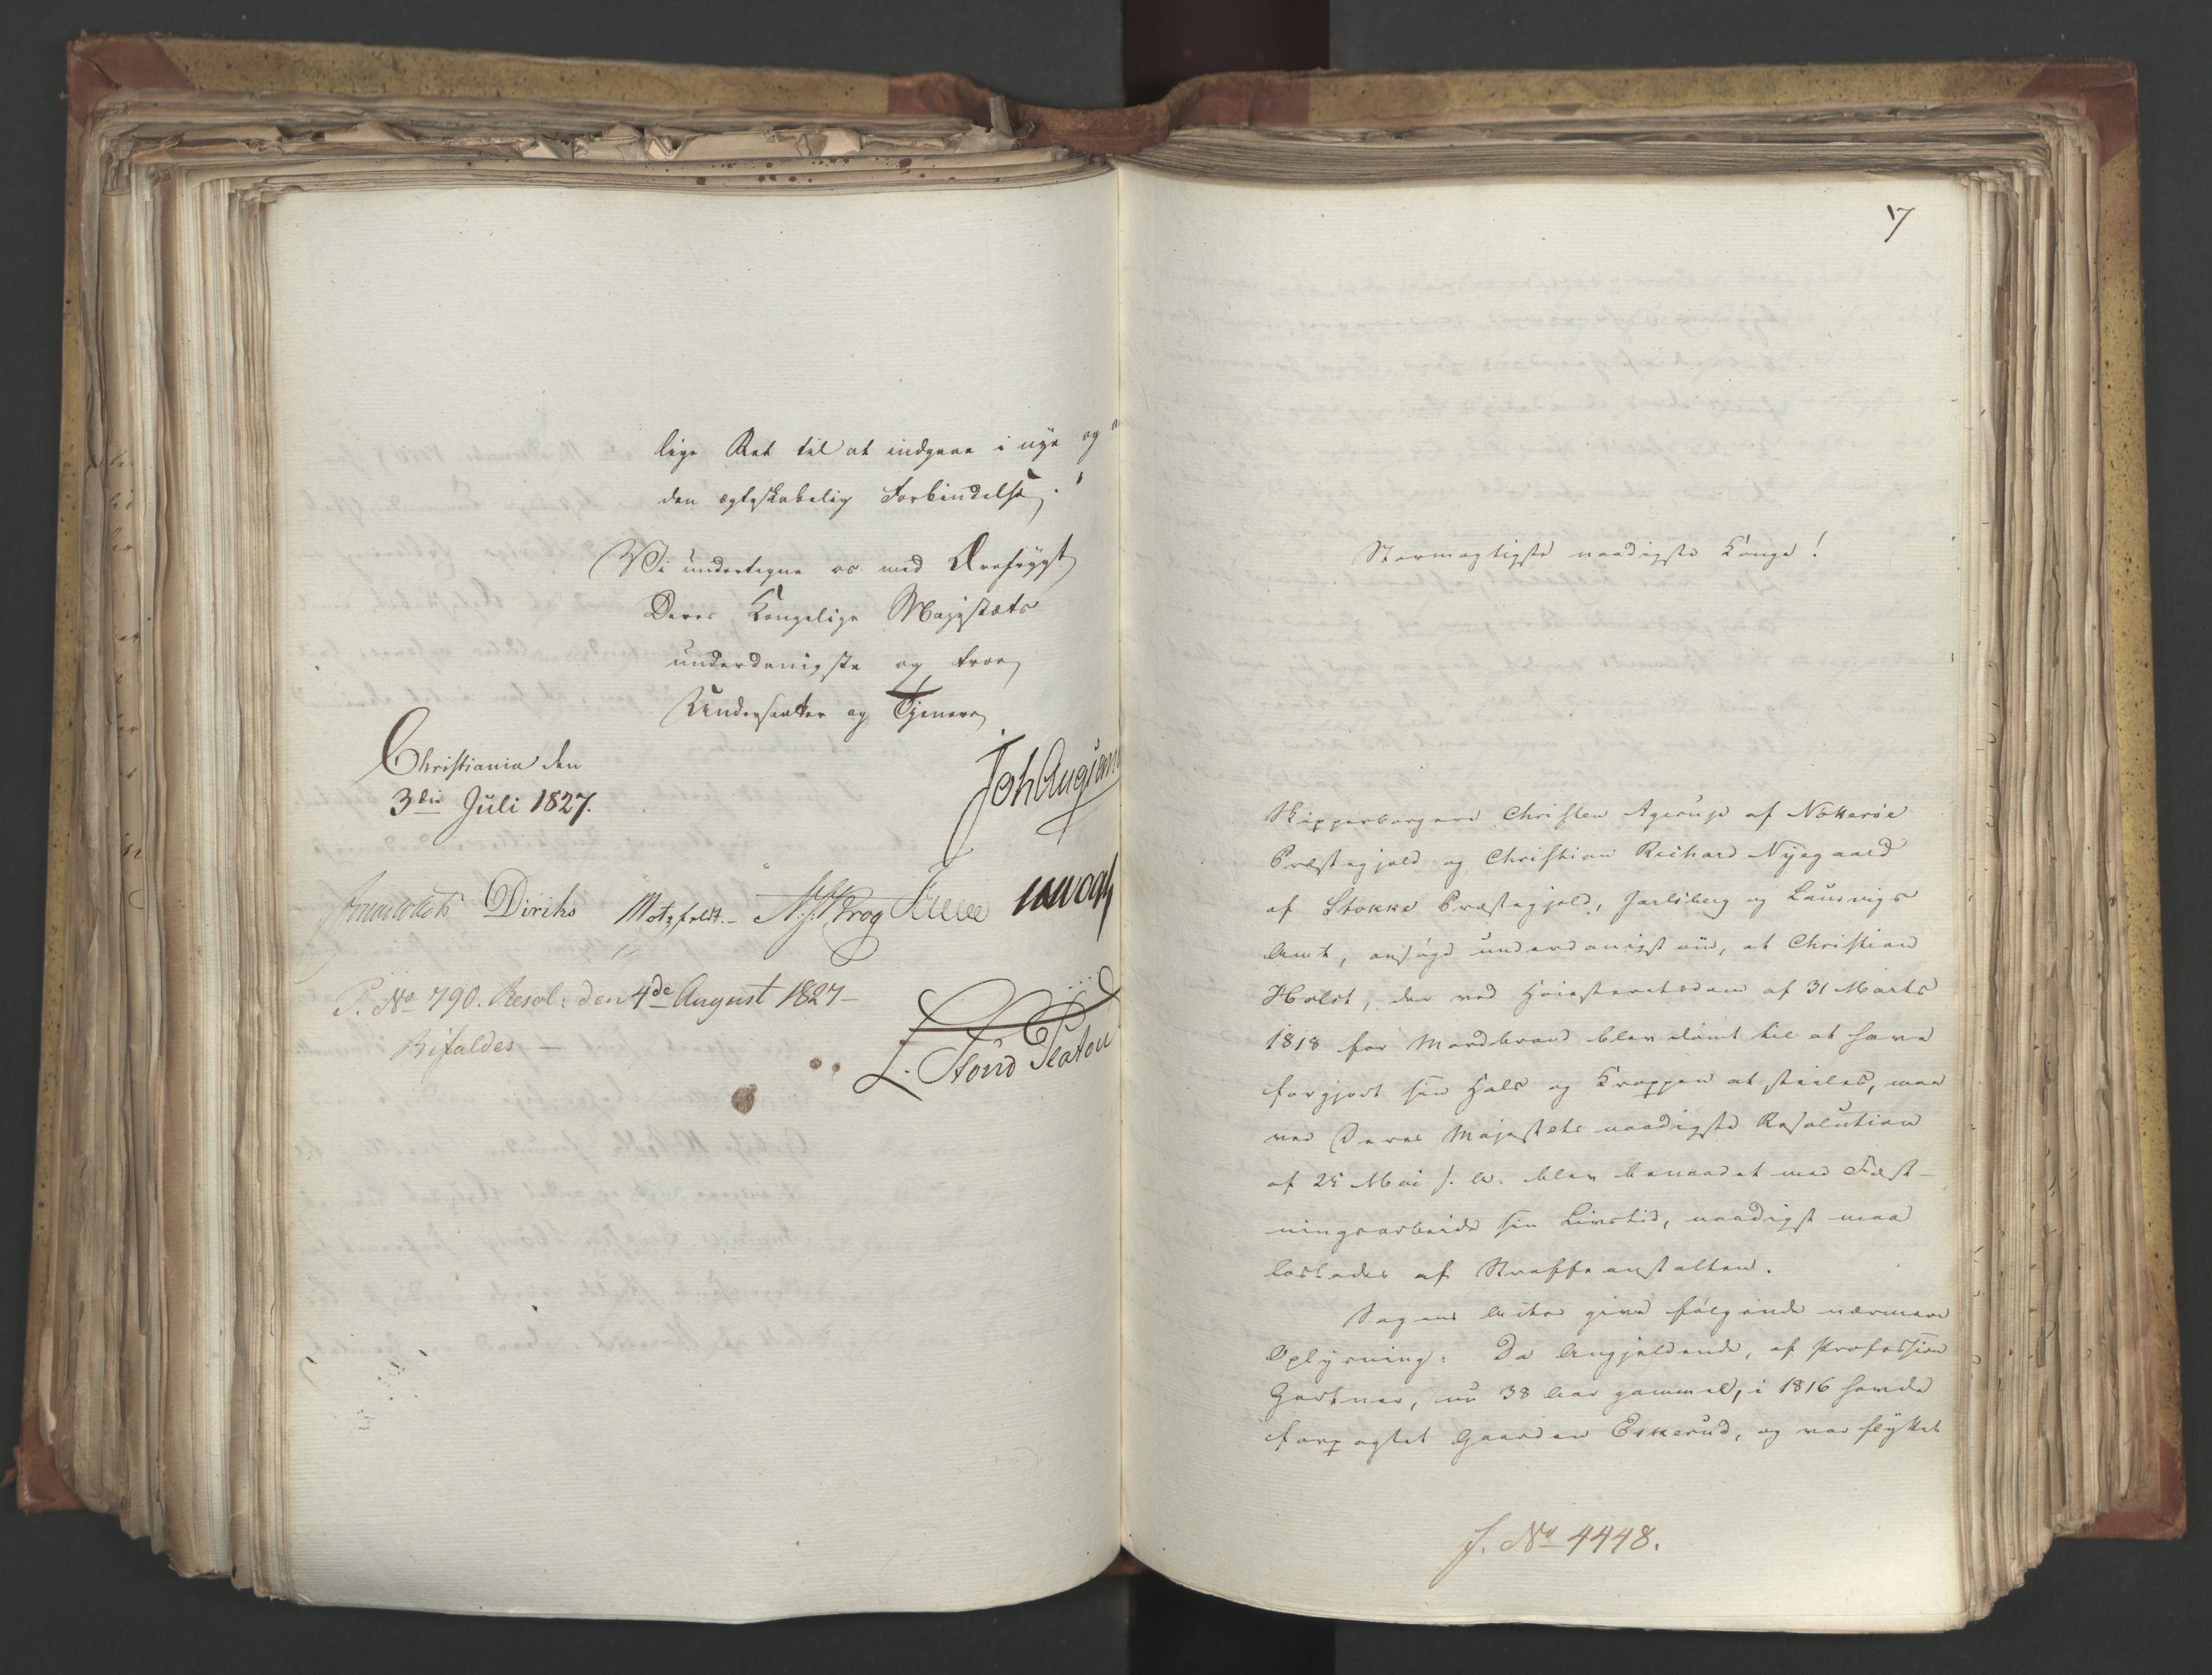 lige Ret til at indgaae i nye og
den ægteskabelig Forbindelse.
Vi undertegne os med Ærefrygt
Deres Kongelige Majestæts
underdanigste og troe
Undersaatter og Tjenere
Christiania den
3die Juli 1827.
Joh Aug Sand
Diriks Motzfeldt. N. J. Krog Treue
P. No 790. Resol: den 4de August 1827 –
Bifaldes –
L. Stoud Platou
7
Stormægtigste naadigste Konge!
Skipperborgere Christen Agerup af Nøtterøe
Præstegjeld og Christian Richard Nyegaard
af Stokke Præstegjeld, Jarlsberg og Laurvigs
Amt, ansøge underdanigst om, at Christian
Holst, der ved Høiesteretsdom af 31 Marts
1818 for Mordbrand blev dømt til at have
forgjort sin Hals og Kroppen at steiles, men
ved Deres Majestæts naadigste Resolution
af 25 Mai s. A. blev benaadet med Fæst-
ningsarbeide sin Livstid, naadigst maa
loslades af Straffeanstalten.
Sagens Acter give følgende nærmere
Oplysning: Da Angjeldende, af Profession
Gartner, nu 38 Aar gammel, i 1816 havde
forpagtet Gaarden Eskerud, og var flyttet
J. No 4448.